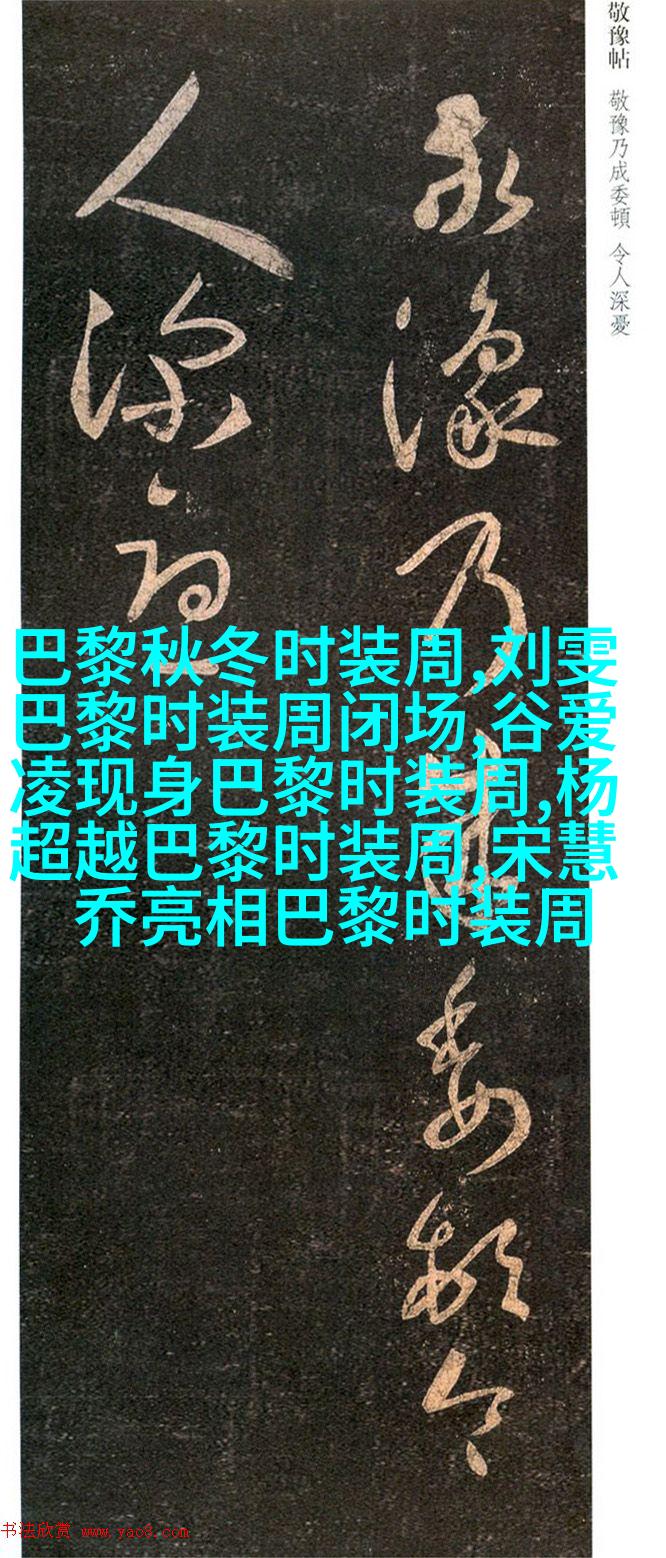 敬豫帖 敬豫乃成委頓 令人深憂
敬豫乃成委頓令
人深憂
巴黎秋冬时装周,刘雯
巴黎时装周闭场,谷爱
凌现身巴黎时装周,杨
超越巴黎时装周,宋慧
乔亮相巴黎时装周
书法欣赏 www.yac8.com